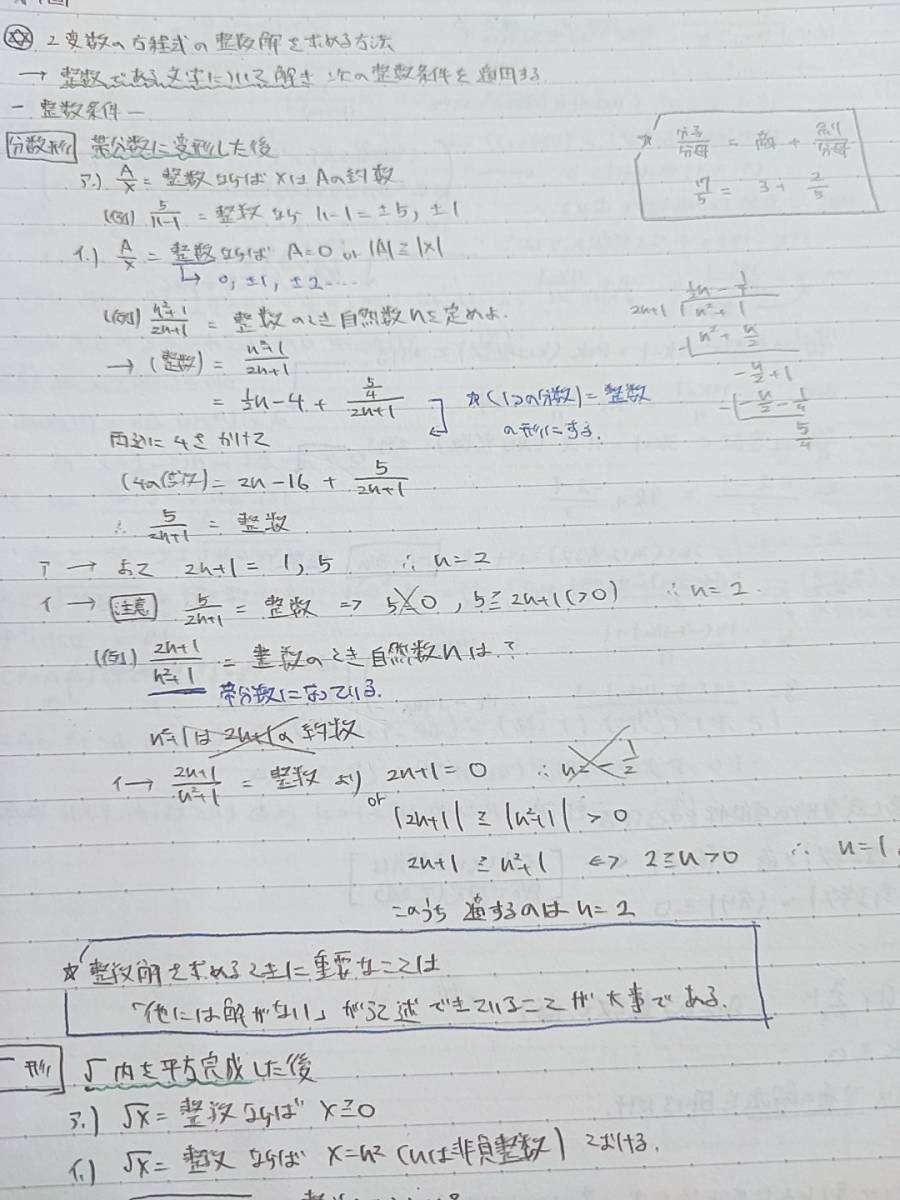 2変数の方程式の整数解を求める方法
→ 整数である文字について解き 次の整数条件を適用する
ー 整数条件 ー
分数形 帯分数に変形した後
☆ 分子/分母 = 商 + 余り/分母
17/5 = 3 + 2/5
ア.) A/x = 整数 ならば xはAの約数
(例) 5/(n-1) = 整数 なら n-1 = ±5, ±1
イ.) A/x = 整数 ならば A=0 or |A| ≧ |x|
↳ 0, ±1, ±2 ……
(例) (n²+1)/(2n+1) = 整数 のとき 自然数nを定めよ.
→ (整数) = (n²+1)/(2n+1)
= 1/2 n - 4 + (5/4)/(2n+1)
☆ (1つの分数) = 整数
の形にする.
両辺に 4をかけて
(4の倍数) = 2n - 16 + 5/(2n+1)
∴ 5/(2n+1) = 整数
1/2 n - 1/4
2n+1 n² + 1
n² + n/2
- n/2 + 1
- n/2 - 1/4
5/4
ア → よって 2n+1 = 1, 5 ∴ n = 2
イ → 注意 5/(2n+1) = 整数 => 5 = 0 , 5 ≧ 2n+1 (>0) ∴ n = 2
(例) (2n+1)/(n²+1) = 整数のとき自然数nは?
帯分数になっている.
n²+1は 2n+1の 約数
イ → (2n+1)/(n²+1) = 整数 より 2n+1 = 0 ∴ n = - 1/2
or
|2n+1| ≧ |n²+1| > 0
2n+1 ≧ n²+1 <=> 2 ≧ n > 0 ∴ n = 1,
このうち 適するのは n = 2
☆ 整数解を求めるときに重要なことは
「他には解がない」が記述できていることが大事である.
形 √内を平方完成した後
ア.) √x = 整数 ならば x ≧ 0
イ.) √x = 整数 ならば x = n² (nは非負整数) とおける.